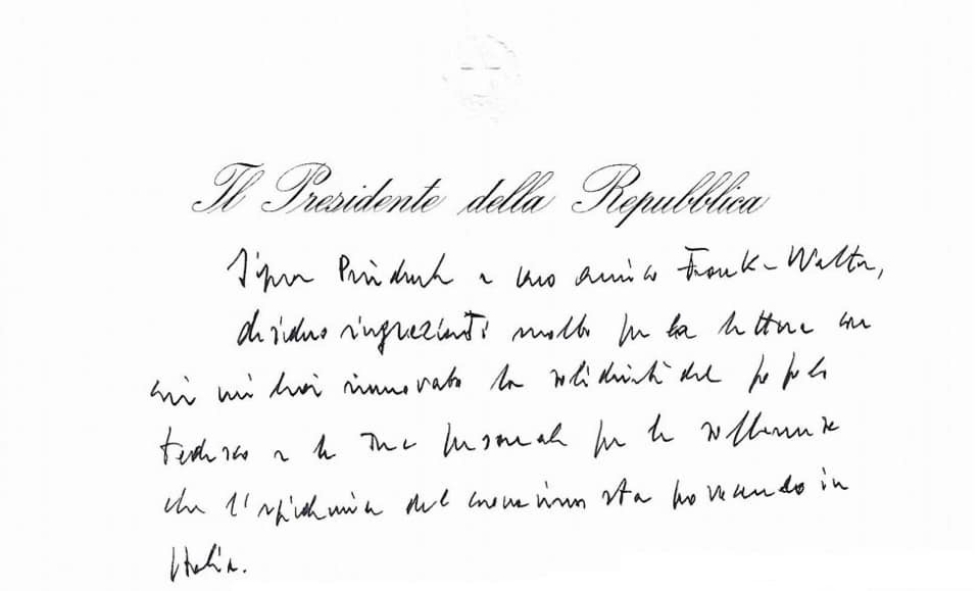 Il Presidente della Repubblica
Signor Presidente e caro amico Frank-Walter,
desidero ringraziarti molto per la lettera con
cui mi hai rinnovato la solidarietà del popolo
tedesco e la Tua personale per le sofferenze
che l'epidemia del coronavirus sta provocando in
Italia.